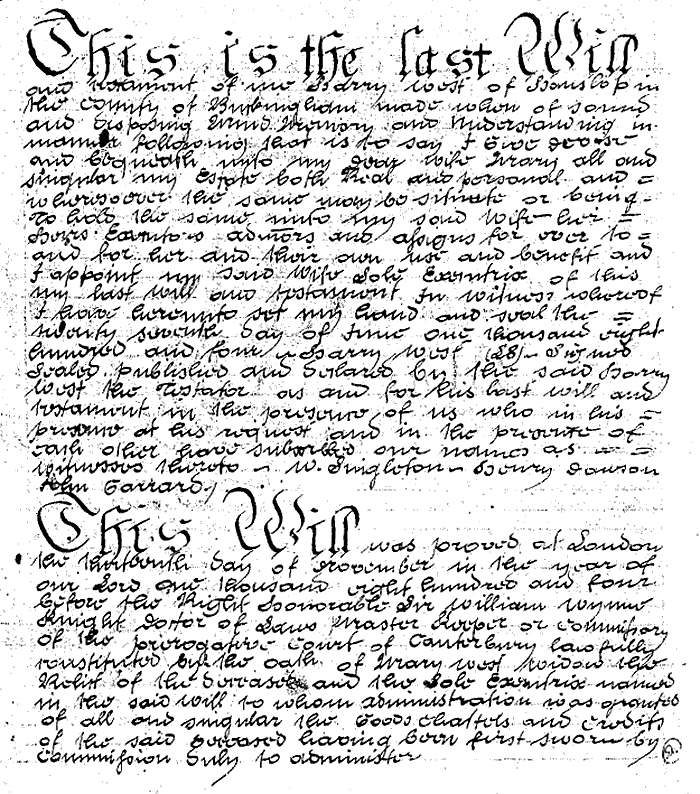 This is the last Will
and testament of me Harry West of Hanslop in
the County of Buckingham made when of sound
and disposing Mind Memory and Understanding in
manner following that is to say I Give devise
and bequeath unto my dear wife Mary all and
singular my Estate both Real and personal and =
wheresoever the same may be situate or being -
To hold the same unto my said Wife her =
Heirs Executors admors and assigns for ever to =
and for her and their own use and benefit and
I appoint my said Wife Sole Executrix of this
my last will and testament In witness whereof
I have hereunto set my hand and seal the =
twenty seventh day of June one thousand eight
hundred and four ~ Harry West (LS) ~ Signed
Sealed published and declared by the said Harry
West the Testator as and for his last will and
testament in the presence of us who in his =
presence at his request and in the presence of
each other have subscribed our names as = =
witnesses thereto ~ W. Singleton ~ Henry Dawson
John Garrard /
This Will was proved at London
the thirteenth day of November in the year of
our Lord One thousand eight hundred and four
before the Right Honorable Sir William Wynne
Knight Doctor of Laws Master Keeper or Commissary
of the prerogative Court of Canterbury lawfully
constituted by the oath of Mary West widow the
Relict of the deceased and the Sole Executrix named
in the said will to whom administration was granted
of all and singular the Goods Chattels and Credits
of the said deceased having been first sworn by
Commission duly to administer